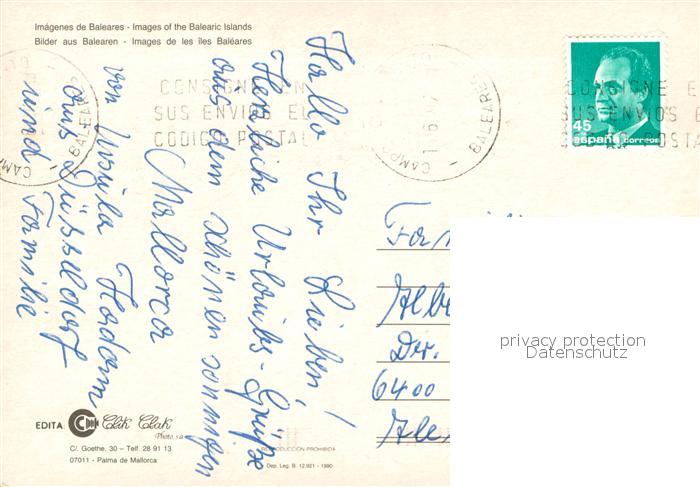 Imágenes de Baleares - Images of the Balearic Islands
Bilder aus Balearen - Images de les îles Baléares
CONSIGNE EN
SUS ENVIOS EL
CODIGO POSTAL
BALEARES
CONSIGNE E
SUS ENVIOS E
POSTA
45
españa correos
Hallo Ihr Lieben!
Herzliche Urlaubs-Grüße
aus dem schönen sonnigen
Mallorca
von Ursula
aus Düsseldorf
und Familie
Der.
6400
privacy protection
Datenschutz
EDITA Clik Clak
Photo, s.a.
C/. Goethe, 30 – Telf. 28 91 13
07011 - Palma de Mallorca
PROHIBIDA
Dep. Leg. B. 12.921 - 1990